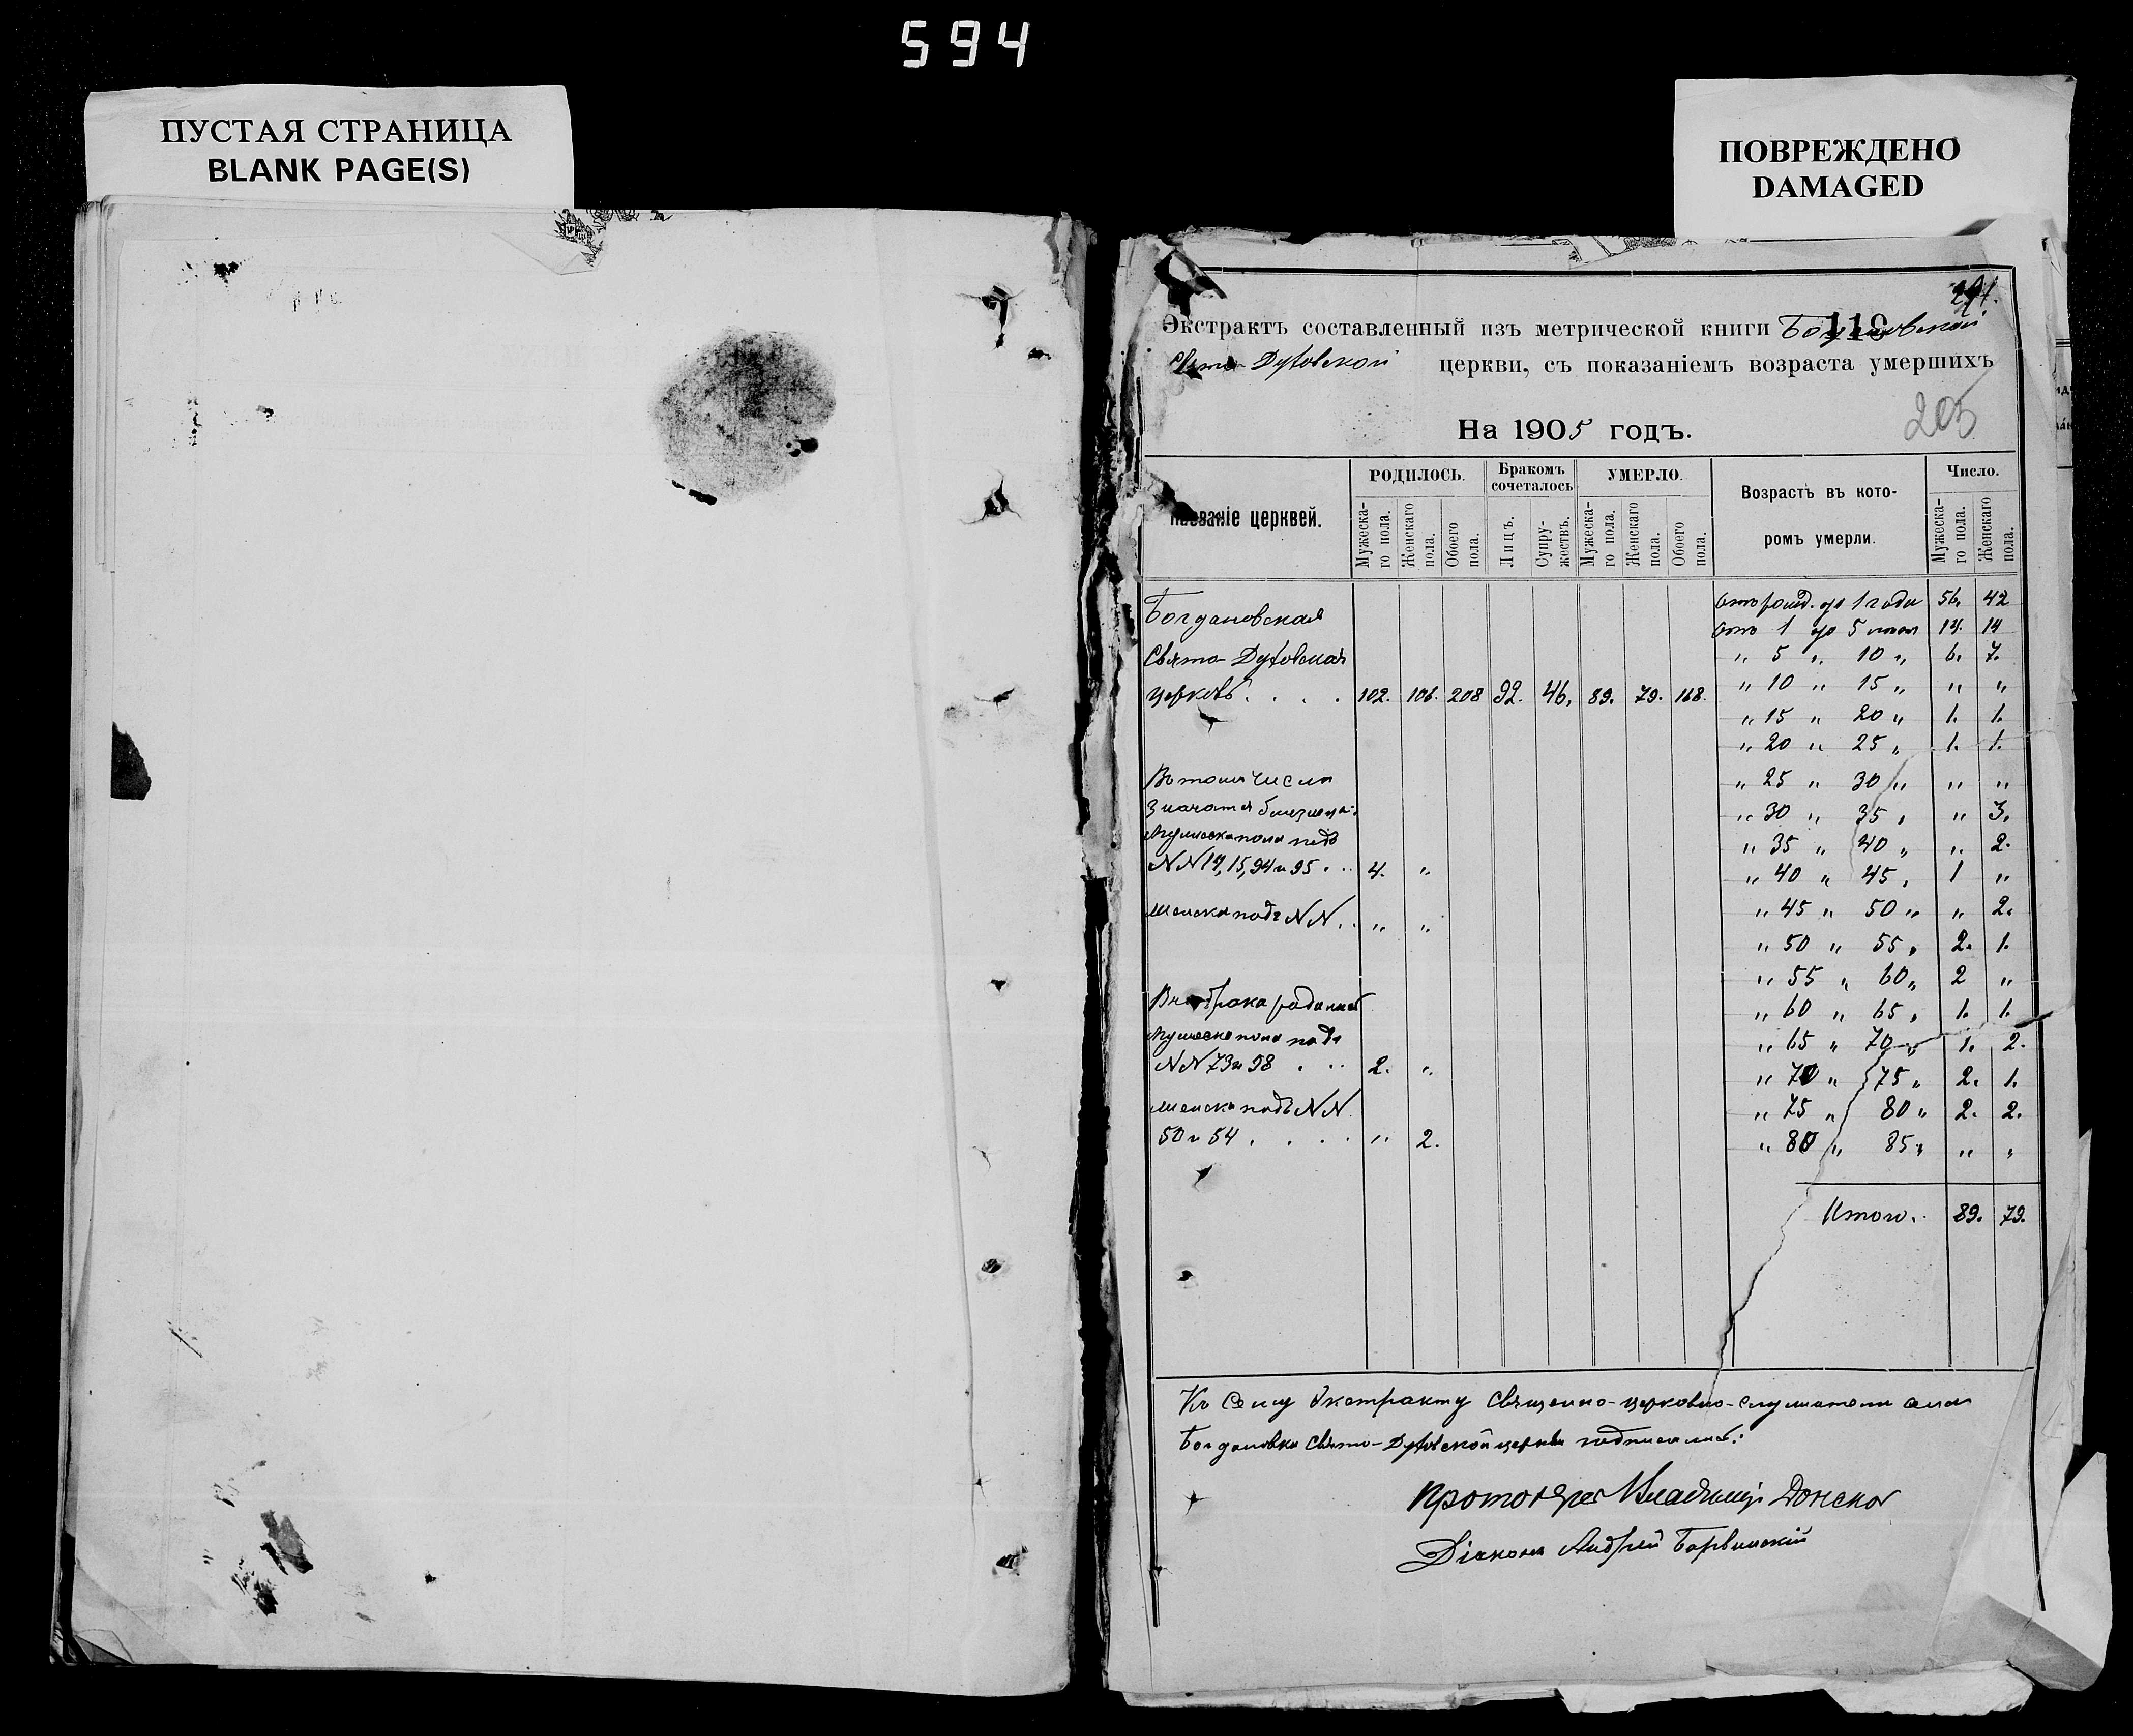 594
ПУСТАЯ СТРАНИЦА
BLANK PAGE(S)
ПОВРЕЖДЕНО
DAMAGED
Экстрактъ составленный изъ метрической книги Богдановской
119
Свято-Духовской церкви, съ показаніемъ возраста умершихъ
203
На 1905 годъ.
Названіе церквей.
РОДИЛОСЬ.
Бракомъ сочеталось
УМЕРЛО.
Возрастъ въ которомъ умерли.
Число.
Мужеска-го пола.
Женскаго пола.
Обоего пола.
Лицъ.
Супру-жествъ.
Мужеска-го пола.
Женскаго пола.
Обоего пола.
Мужеска-го пола.
Женскаго пола.
Богдановская
Свято-Духовская
церковь . . . . 102. 106. 208 92. 46. 89. 79. 168.
Въ томъ числѣ
значатся близнецы:
мужеска пола подъ
NN 14, 15, 94 и 95 . . . 4. „
женска подъ NN . . „ „
Внѣ брака рожденные
мужеска пола подъ
NN 73 и 98 . . . 2. „
женска подъ NN
50 и 54 . . . . „ 2.
Отъ рожд. до 1 года 56. 42
Отъ 1 до 5 лѣтъ 14. 14
„ 5 „ 10 „ 6. 7.
„ 10 „ 15 „ „ „
„ 15 „ 20 „ 1. 1.
„ 20 „ 25 „ 1. 1.
„ 25 „ 30 „ „ „
„ 30 „ 35 „ „ 3.
„ 35 „ 40 „ „ 2.
„ 40 „ 45 „ 1 „
„ 45 „ 50 „ „ 2.
„ 50 „ 55 „ 2. 1.
„ 55 „ 60 „ 2 „
„ 60 „ 65 „ 1. 1.
„ 65 „ 70 „ 1. 2.
„ 70 „ 75 „ 2. 1.
„ 75 „ 80 „ 2. 2.
„ 80 „ 85 „ „ „
Итого. 89. 79.
Къ сему экстракту священно-церковно-служители села
Богдановки Свято-Духовской церкви подписались:
Протоіерей Владимір Донской
Діаконъ Андрей Барвинскій